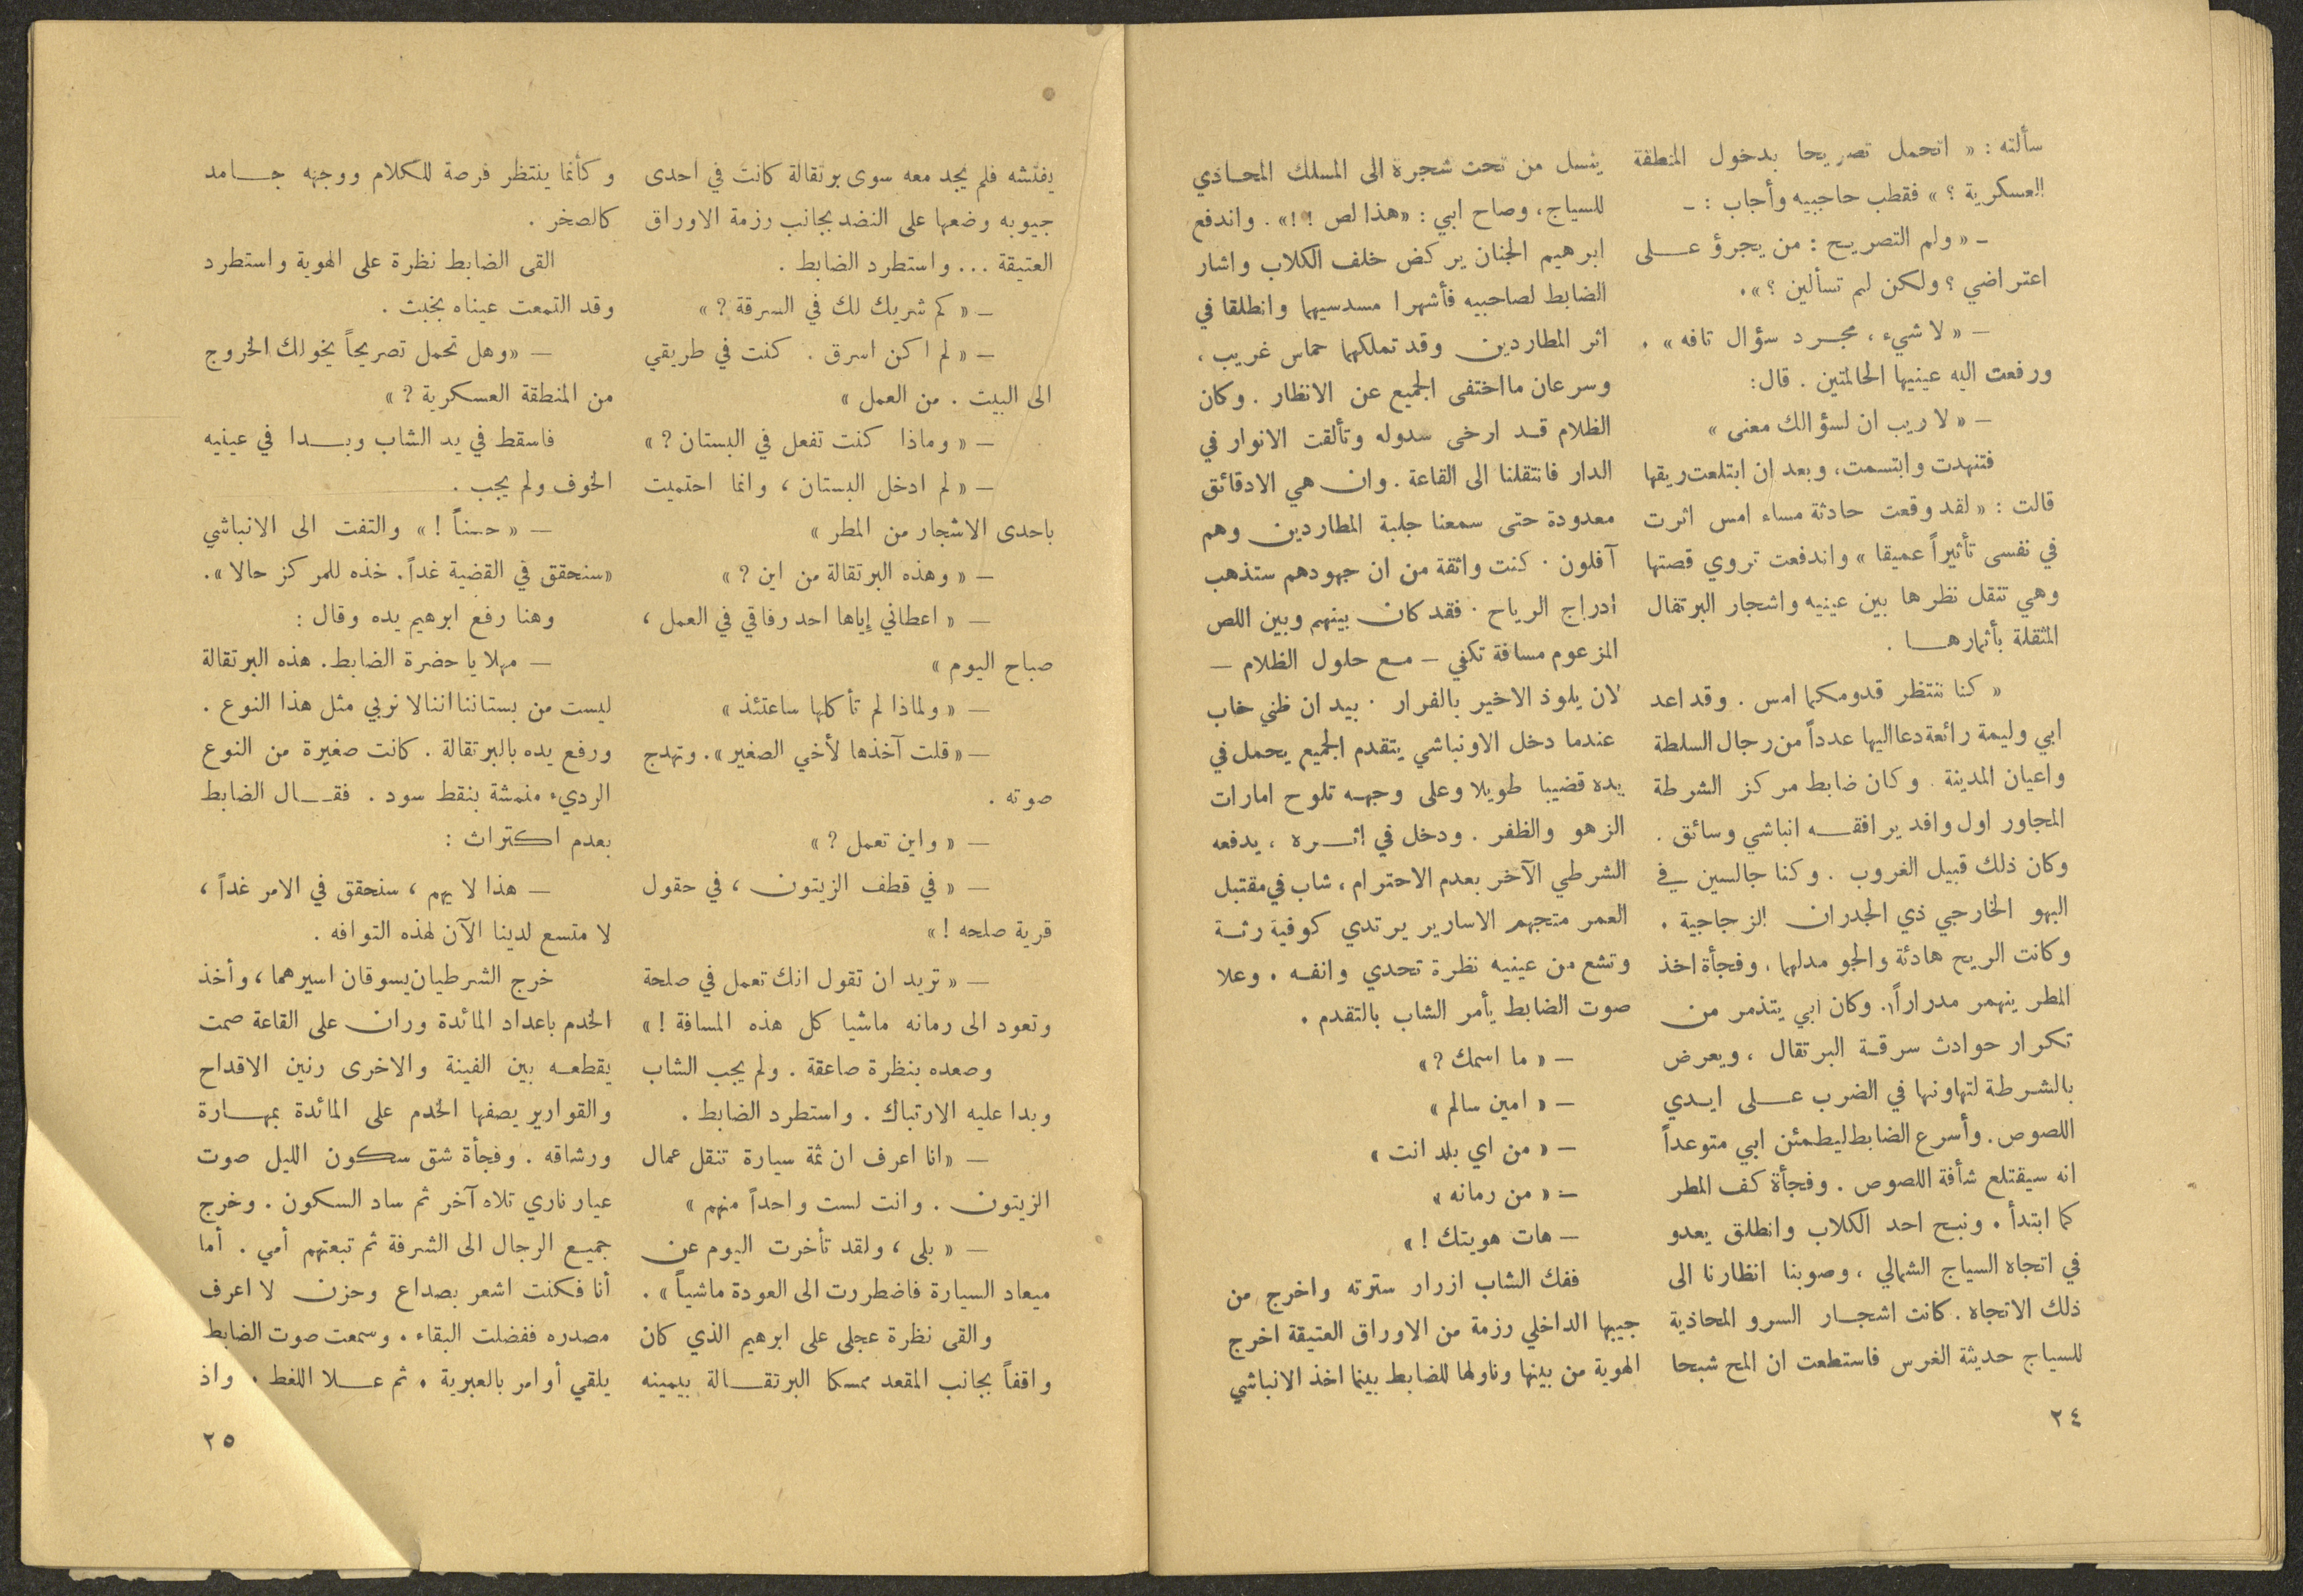 سألته : « اتحمل تصريحا بدخول المنطقة
العسكرية ؟ » فقطب حاجبيه وأجاب : ـ
ـ « ولم التصريح : من يجرؤ عـــلى
اعتراضي ؟ ولكن لم تسألين ؟ » .
ـ « لا شيء ، مجـرد سؤال تافه » .
ورفعت اليه عينيها الحالمتين . قال :
ـ « لا ريب ان لسؤالك معنى »
فتنهدت وابتسمت، وبعد ان ابتلعت ريقها
قالت : « لقد وقعت حادثة مساء امس اثرت
في نفسى تأثيراً عميقا » واندفعت تروي قصتها
وهي تنقل نظرها بين عينيه واشجار البرتقال
المثقلة بأثمارهـا .
« كنا ننتظر قدومكما امس . وقد اعد
ابي وليمة رائعة دعا اليها عدداً من رجال السلطة
واعيان المدينة . وكان ضابط مركز الشرطة
المجاور اول وافد يرافقـــه انباشي وسائق .
وكان ذلك قبيل الغروب . وكنا جالسين في
البهو الخارجي ذي الجدران الزجاجية .
وكانت الريح هادئة والجو مدلهما . وفجأة اخذ
المطر ينهمر مدراراً . وكان ابي يتذمر من
تكرار حوادث سرقة البرتقال ، ويعرض
بالشرطة لتهاونها في الضرب عـــلى ايــدي
اللصوص . وأسرع الضابط ليطمئن ابي متوعداً
انه سيقتلع شأفة اللصوص . وفجأة كف المطر
كما ابتدأ . ونبح احد الكلاب وانطلق يعدو
في اتجاه السياج الشمالي ، وصوبنا انظارنا الى
ذلك الاتجاه . كانت اشجـــار السرو المحاذية
للسياج حديثة الغرس فاستطعت ان المح شبحا
ينسل من تحت شجرة الى المسلك المحـاذي
للسياج، وصاح ابي : «هذا لص !!» . واندفع
ابرهيم الجنان يركض خلف الكلاب واشار
الضابط لصاحبيه فأشهرا مسدسيهما وانطلقا في
اثر المطاردين وقد تملكهما حماس غريب ،
وسرعان ما اختفى الجميع عن الانظار . وكان
الظلام قـد ارخى سدوله وتألقت الانوار في
الدار فانتقلنا الى القاعة . وان هي الا دقائق
معدودة حتى سمعنا جلبة المطاردين وهم
آفلون . كنت واثقة من ان جهودهم ستذهب
ادراج الرياح . فقد كان بينهم وبين اللص
المزعوم مسافة تكفي ـ مـع حلول الظلام ـ
لان يلوذ الاخير بالفرار . بيد ان ظني خاب
عندما دخل الاونباشي يتقدم الجميع يحمل في
يده قضيبا طويلا وعلى وجهـه تلوح امارات
الزهو والظفر . ودخل في اثــره ، يدفعه
الشرطي الآخر بعدم الاحترام ، شاب في مقتبل
العمر متجهم الاسارير يرتدي كوفية رثـة
وتشع من عينيه نظرة تحدي وانفـه . وعلا
صوت الضابط يأمر الشاب بالتقدم .
ـ « ما اسمك ؟ »
ـ « امين سالم »
ـ « من اي بلد انت »
ـ « من رمانه »
ـ هات هويتك ! »
ففك الشاب ازرار سترته واخرج من
جيبها الداخلي رزمة من الاوراق العتيقة اخرج
الهوية من بينها وناولها للضابط بينما اخذ الانباشي
٢٤
يفتشه فلم يجد معه سوى برتقالة كانت في احدى
جيوبه وضعها على النضد بجانب رزمة الاوراق
العتيقة ... واستطرد الضابط .
ـ « كم شريك لك في السرقة ؟ »
ـ « لم اكن اسرق . كنت في طريقي
الى البيت . من العمل »
ـ « وماذا كنت تفعل في البستان ؟ »
ـ « لم ادخل البستان ، وانما احتميت
باحدى الاشجار من المطر »
ـ « وهذه البرتقالة من اين ؟ »
ـ « اعطاني إياها احد رفاقي في العمل ،
صباح اليوم »
ـ « ولماذا لم تأكلها ساعتئذ »
ـ « قلت آخذها لأخي الصغير » . وتهدج
صوته .
ـ « واين تعمل ؟ »
ـ « في قطف الزيتون ، في حقول
قرية صلحه ! »
ـ « تريد ان تقول انك تعمل في صلحة
وتعود الى رمانه ماشيا كل هذه المسافة ! »
وصعده بنظرة صاعقة . ولم يجب الشاب
وبدا عليه الارتباك . واستطرد الضابط .
ـ « انا اعرف ان ثمة سيارة تنقل عمال
الزيتون . وانت لست واحداً منهم »
ـ « بلى ، ولقد تأخرت اليوم عن
ميعاد السيارة فاضطررت الى العودة ماشياً » .
والقى نظرة عجلى على ابرهيم الذي كان
واقفاً بجانب المقعد ممسكا البرتقـــالة بيمينه
وكأنما ينتظر فرصة للكلام ووجهه جـــامد
كالصخر .
القى الضابط نظرة على الهوية واستطرد
وقد التمعت عيناه بخبث .
ـ « وهل تحمل تصريحاً يخولك الخروج
من المنطقة العسكرية ؟ »
فاسقط في يد الشاب وبــدا في عينيه
الخوف ولم يجب .
ـ « حسناً ! » والتفت الى الانباشي
«سنحقق في القضية غداً . خذه للمركز حالا» .
وهنا رفع ابرهيم يده وقال :
ـ مهلا يا حضرة الضابط . هذه البرتقالة
ليست من بستاننا اننا لا نربي مثل هذا النوع .
ورفع يده بالبرتقالة . كانت صغيرة من النوع
الرديء منمشة بنقط سود . فقــال الضابط
بعدم اكتراث :
ـ هذا لا يهم ، سنحقق في الامر غداً ،
لا متسع لدينا الآن لهذه التوافه .
خرج الشرطيان يسوقان اسيرهما ، وأخذ
الخدم باعداد المائدة وران على القاعة صمت
يقطعـه بين الفينة والاخرى رنين الاقداح
والقوارير يصفها الخدم على المائدة بمهــارة
ورشاقه . وفجأة شق سكون الليل صوت
عيار ناري تلاه آخر ثم ساد السكون . وخرج
جميـع الرجال الى الشرفة ثم تبعتهم أمي . أما
أنا فكنت اشعر بصداع وحزن لا اعرف
مصدره ففضلت البقاء . وسمعت صوت الضابط
يلقي أوامر بالعبرية . ثم عـــلا اللغط . واذ
٢٥